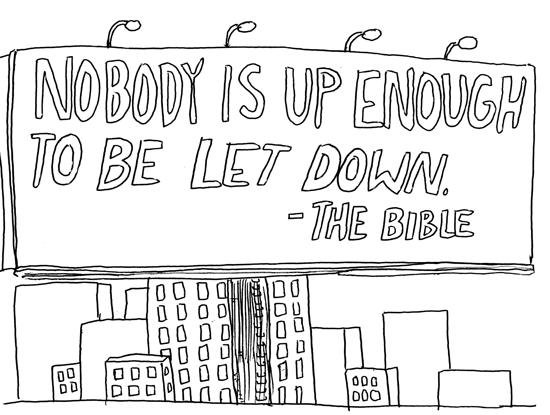 NOBODY IS UP ENOUGH
TO BE LET DOWN.
- THE BIBLE